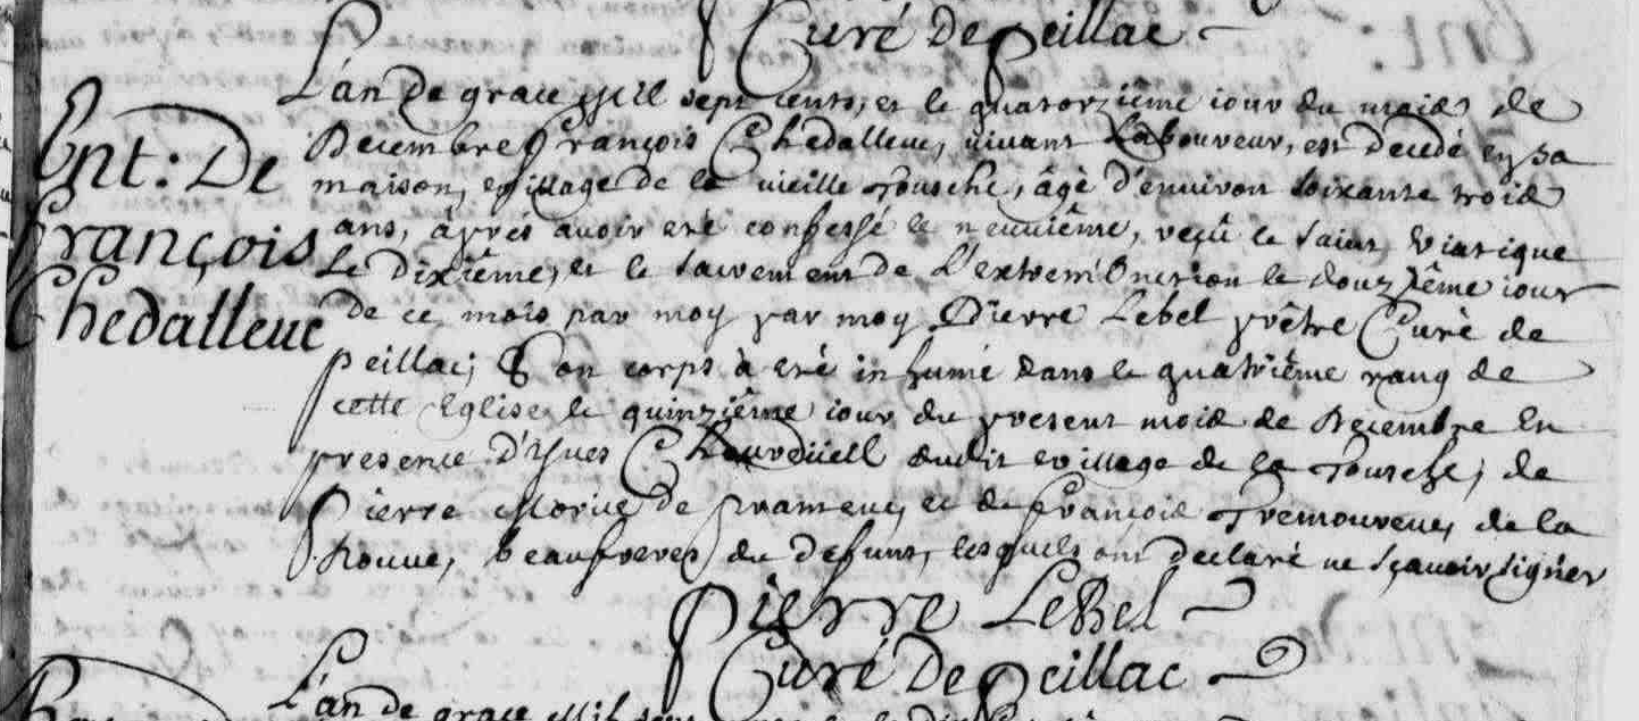 Curé De Peillac
L'an De grace Mil sept cents, et le quatorzième iour du mois de
Decembre François Chedalleuc, vivant Laboureur, est decedé en sa
maison, village de la vieille Tousche, âgé d'environ soixante trois
ans, àprés avoir eté confessé le neuuiême, reçû le saint viatique
Le dixiême, et le sacrement de L'extrem'Onction le douziême iour
de ce mois par moy par moy Pierre Lebel prêtre Curé de
Peillac; Son corps à eté inhumé dans le quatriême rang de
cette Eglise le quinziême iour du present mois de Decembre En
presence D'Yues dudit village de la Tousche; de
Pierre Morice de et de François Tremoureuc, de la
houue, beaufreres du defunt, lesquels ont declaré ne sçauoir signer
Ent: De
François
Chedalleuc
Pierre LeBel
Curé De Peillac
L'an De grace Mil sept